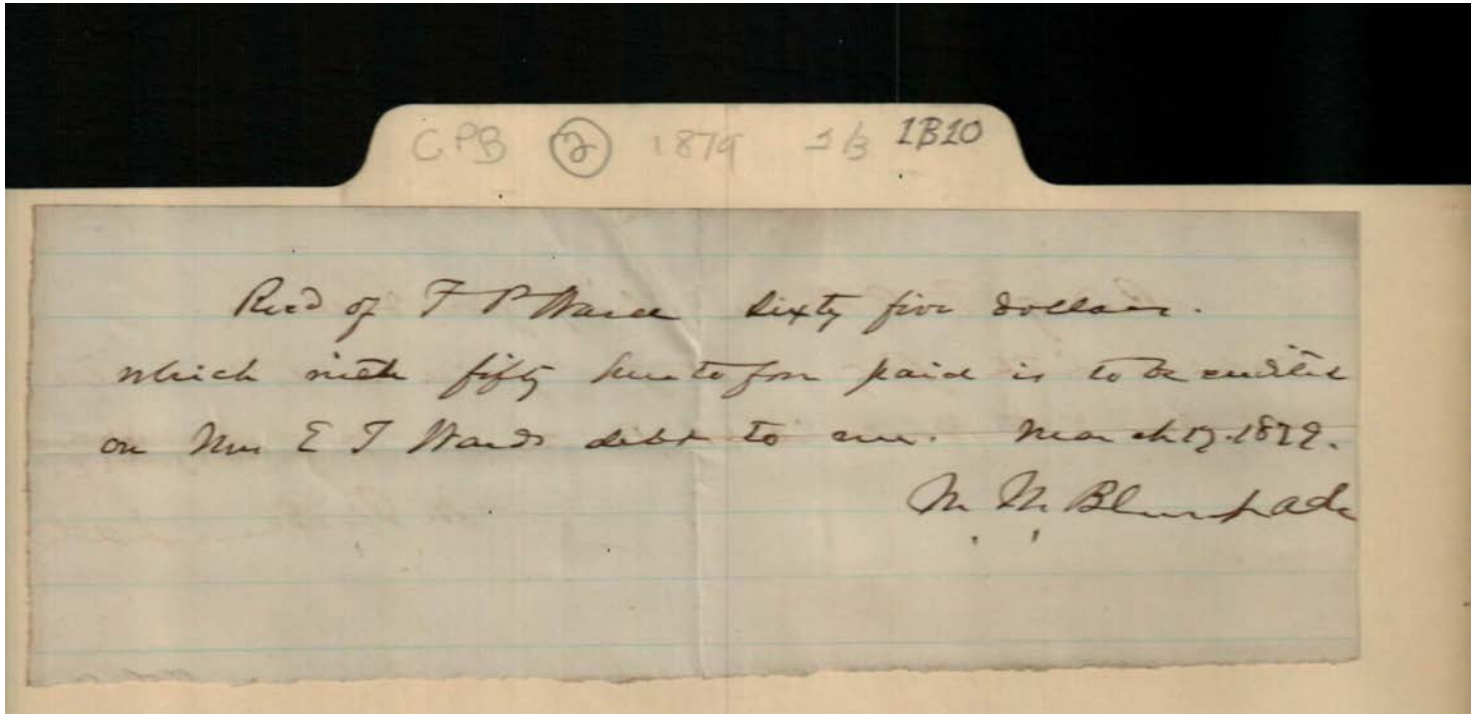 CPB 2 1879 1/3 1B10
Rec'd of F P Ward Sixty five dollars.
which with fifty heretofore paid is to be credited
on Mrs E T Wards debt to me. March 17. 1879.
M. M.